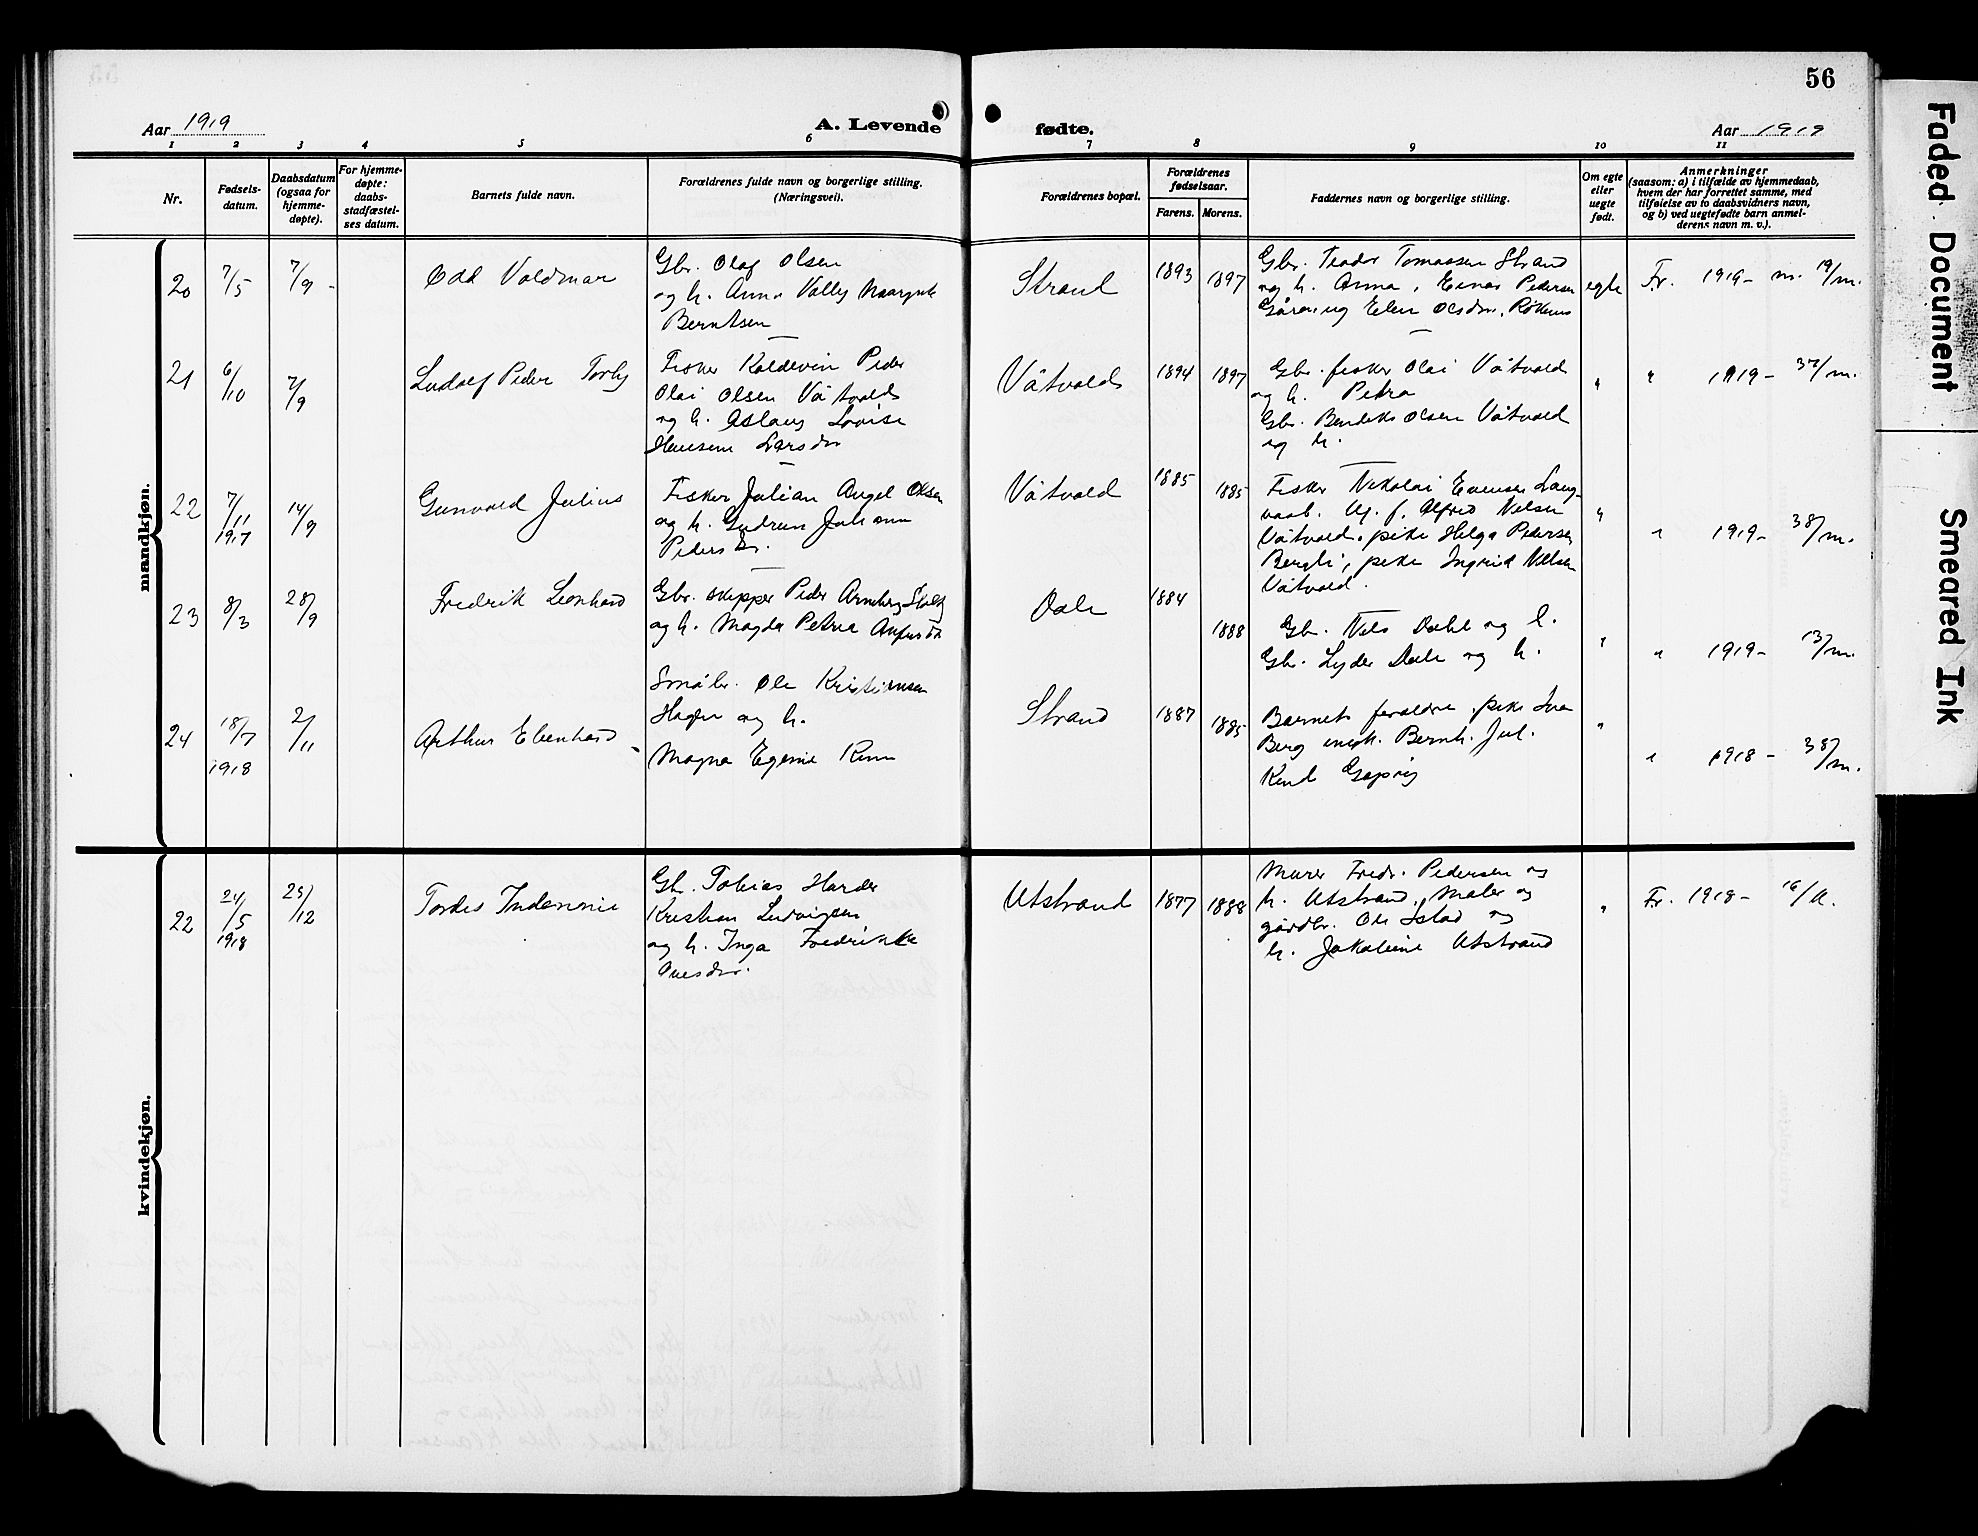 56
Aar 1919
A. Levende fødte.
Aar 1919
1 2 3 4 5 6 7 8 9 10 11
Nr.
Fødsels-
datum.
Daabsdatum
(ogsaa for
hjemme-
døpte).
For hjemme-
døpte:
daabs-
stadfæstel-
ses datum.
Barnets fulde navn.
Forældrenes fulde navn og borgerlige stilling.
(Næringsvei).
Forældrenes bopæl.
Forældrenes
fødselsaar.
Farens. Morens.
Faddernes navn og borgerlige stilling.
Om egte
eller
uegte
født.
Anmerkninger
(saasom: a) i tilfælde av hjemmedaab,
hvem der har forrettet samme, med
tilføielse av to daabsvidners navn,
og b) ved uegtefødte barn anmel-
derens navn m. v.).
mandkjøn.
20
7/5
7/9 -
Odd Valdmar
Gbr. Olaf Olsen
og h. Anna Valley
Berntsen
Strand
1893
1897
Gbr. Teodor Tomassen Strand
og h. Anna, Einar Pedersen
og Elen Olsdtr.
egte
Fr. 1919 - m. 19/m.
21
6/10
7/9
Ludolf Peder
Fisker Koldevin Peder
Olai Olsen Våtvold
og h. Aslaug Lovise
Hansine Larsdtr
Våtvold
1894
1897
Gbr. fisker Olai Våtvold
og h. Petra
Gbr. Bendiks Olsen Våtvold
og h.
"
"
1919 - 37/m.
22
7/11
1917
14/9
Gunvald Julius
Fisker Julian Angel Olsen
og h. Gudrun
Pedersdr.
Våtvold
1885
1885
Fisker Nikolai Evensen Lang-
vasb. Ug. f. Alfred Nilsen
Våtvold, pike Helga Pedersen
Bergli, pike Ingrid Nilsen
Våtvold.
"
"
1919 - 38/m.
23
8/3
28/9
Fredrik Leonhard
Gbr. skipper Peder Arnberg
og h. Magda Petrea
Dale
1884
1888
Gb. Nils Dahl og h.
Gbr. Lyder Dale og h.
"
"
1919 - 13/m.
24
18/7
1918
2/11
Arthur Edenhard -
Småbr. Ole Kristiansen
Hagen og h.
Magna Egenie
Strand
1887
1885
Barnets foraldre, pike
Berg Bernh. Jul.
"
"
1918 - 38/m.
kvindekjøn.
22
24/5
1918
25/12
Tordis Indianne
Gb. Tobias Harder
Kristian Ludvigsen
og h. Inga Fredrikke
Utstrand
1877
1888
Murer Fredr. Pedersen og
h. Utstrand, maler og
gårdbr. Ole og
h. Jakobine Utstrand
"
Fr. 1918 - 16/a.
Faded Document
Smeared Ink